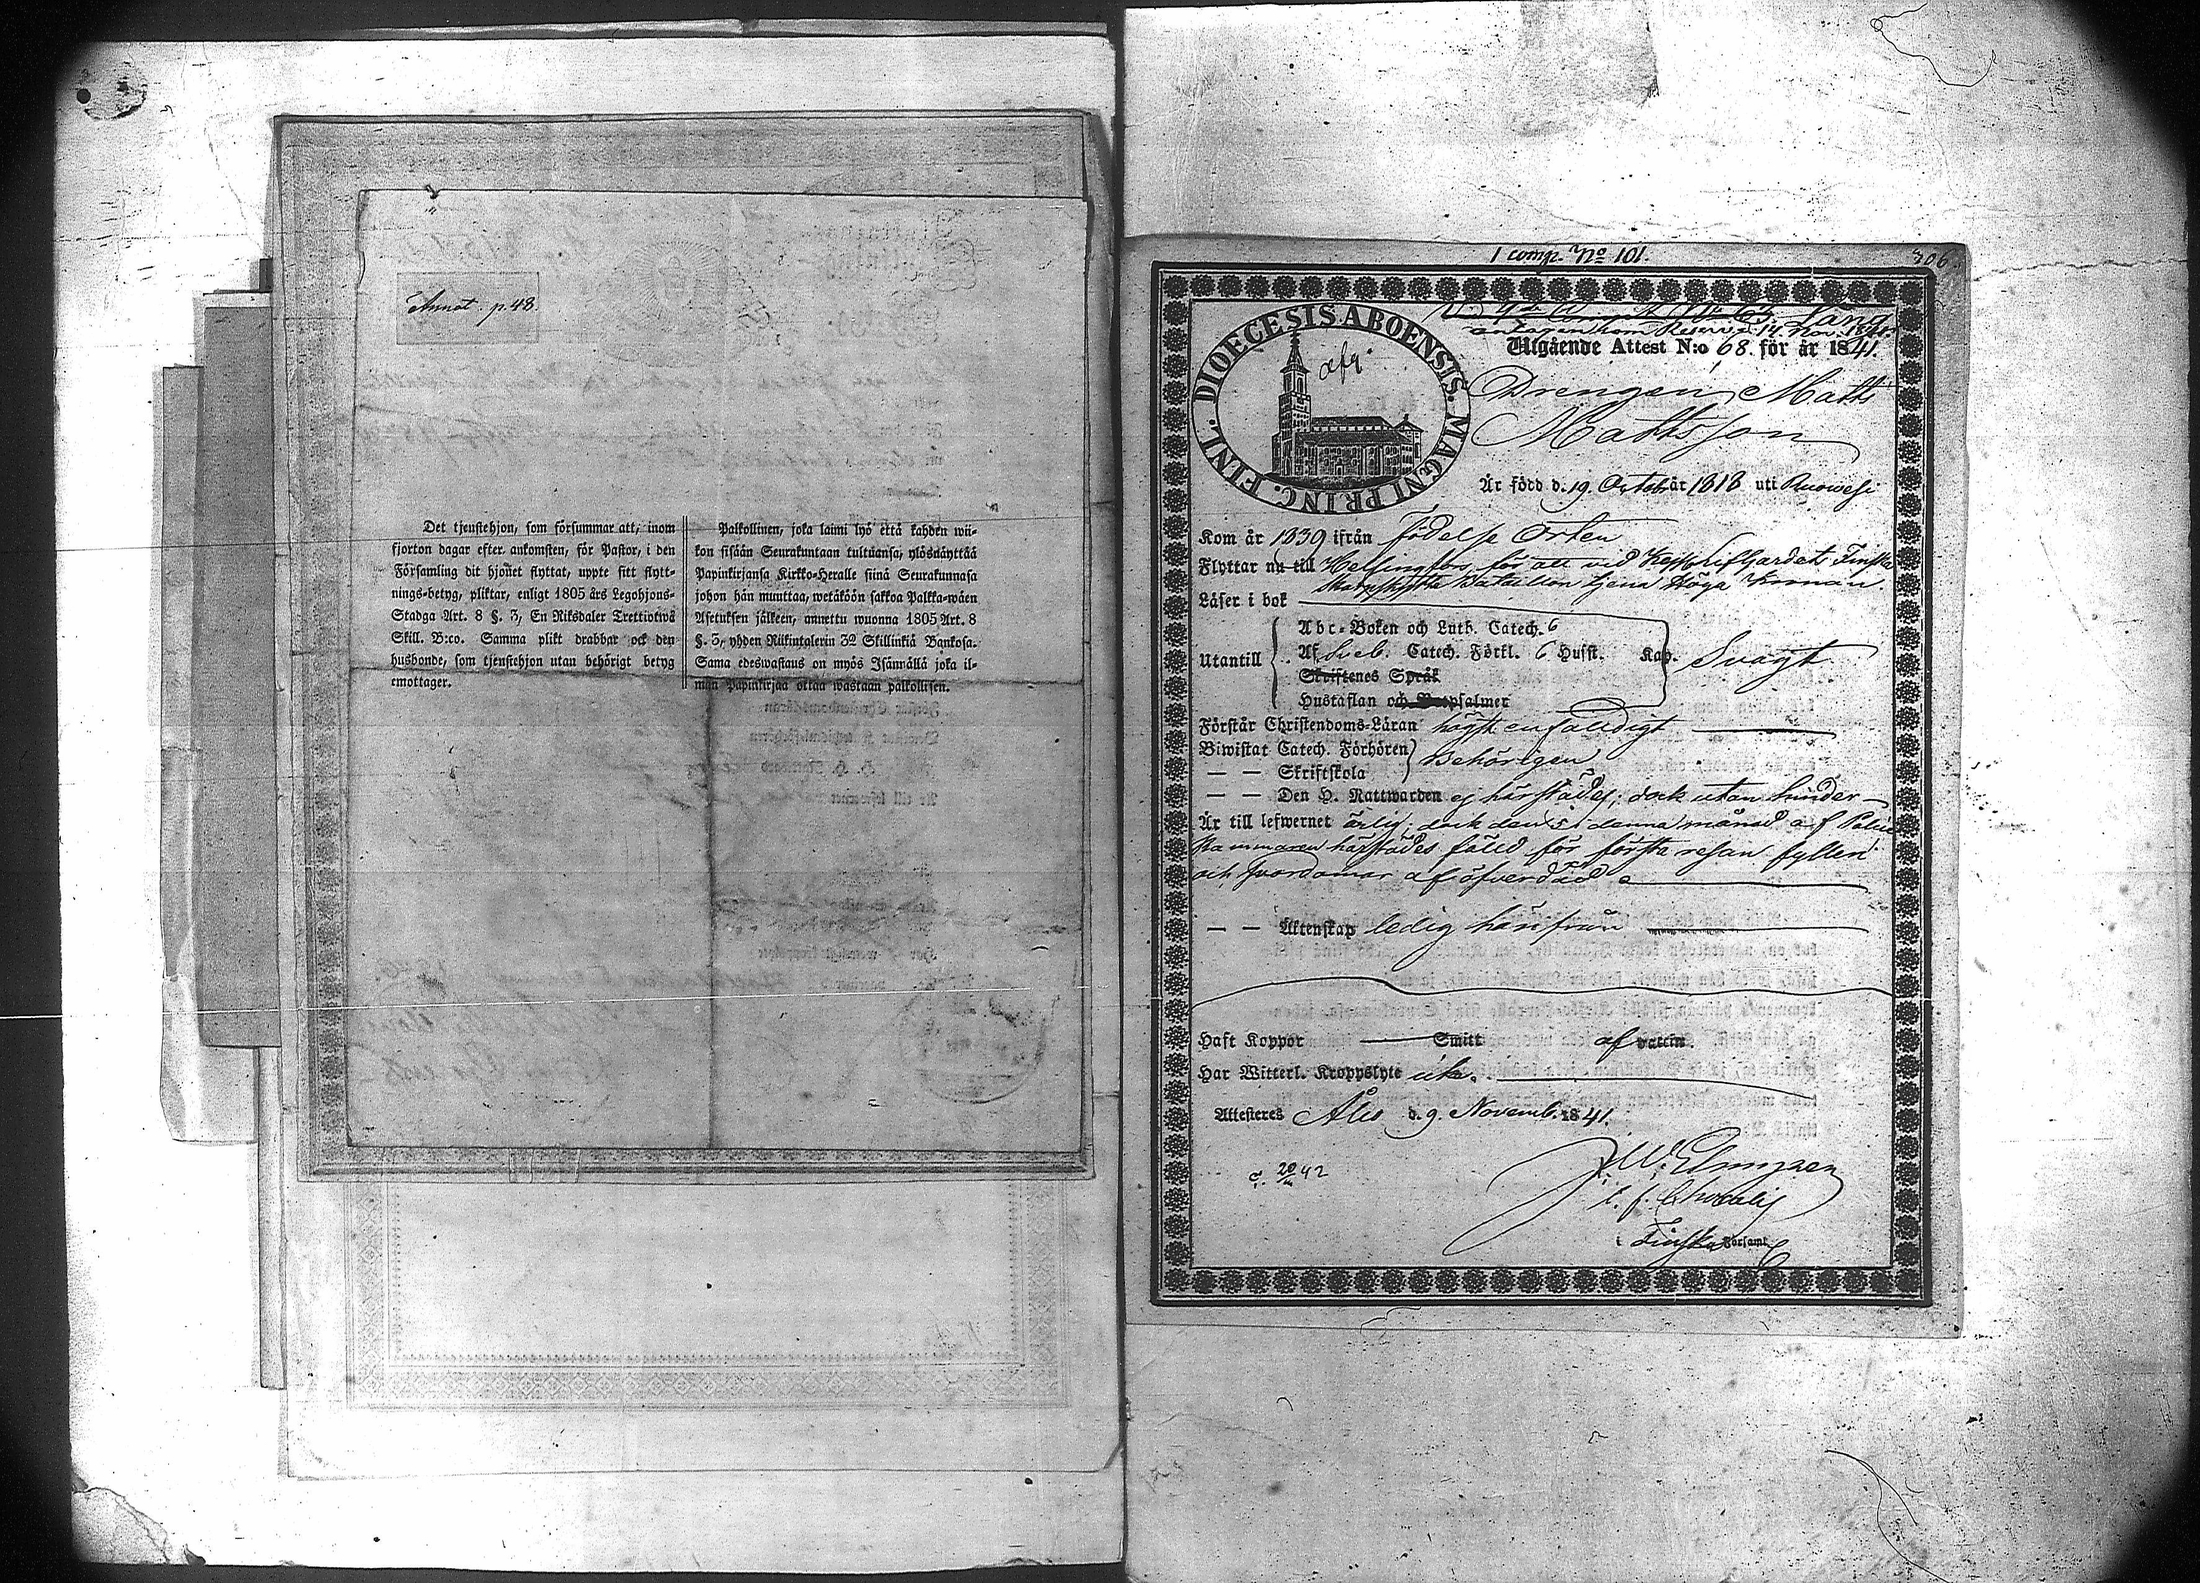 Annot. p. 48.
Det tjenstehjon, som försummar att, inom
fjorton dagar efter ankomsten, för Pastor, i den
Församling dit hjonet flyttat, uppte sitt flytt-
nings-betyg, pliktar, enligt 1805 års Legohjons-
Stadga Art. 8 §. 3, En Riksdaler Trettiotwå
Skill. B:co. Samma plikt drabbar ock den
husbonde, som tjenstehjon utan behörigt betyg
emottager.
Palkollinen, joka laimi lyö että kahden wii-
kon sisään Seurakuntaan tultuansa, ylösnäyttää
Papinkirjansa Kirkko-Heralle siinä Seurakunnasa
johon hän muuttaa, wetäköön sakkoa Palkka-wäen
Asetuksen jälkeen, annettu wuonna 1805 Art. 8
§. 3, yhden Riikintalerin 32 Skillinkiä Bankosa.
Sama edeswastaus on myös Isännällä joka il-
man Papinkirjaa ottaa wastaan palkollisen.
1 comp. No 101.
306.
antagen som Reserv 14. Nov. 1841
DIOECESIS ABOENSIS. MAGNI PRINC. FINL.
afg.
Utgående Attest N:o 68. för år 1841.
Drengen, Matts
Mattsson
Är född d. 19. Octob. år 1818 uti Ruowesi
Kom år 1839 ifrån födelse Orten
Flyttar nu till Helsingfors, för att vid Kejs. Lifgardets Finska
Skarpskytte Bataillon tjena Höga Kronan.
Läser i bok
Utantill
Abc-Boken och Luth. Catech. 6
Af Sveb. Catech. Förkl. 6 Husst. Kap. Svagt
Skriftenes Språk
Hustaflan och psalmer
Förstår Christendoms-Läran högst enfaldigt
Biwistat Catech. Förhören
— — Skriftskola
Behörigen
— — Den H. Nattwarden ej härstädes, dock utan hinder
Är till lefwernet ärlig, dock den 5 denna månad af Police
Kammaren härstädes fälld för första resan fylleri
och svordomar af öfverdåd
— — Äktenskap ledig härifrån
Haft Koppor — Smitt af vaccin.
Har Witterl. Kroppslyte icke.
Attesteres Åbo d. 9. Novemb. 1841.
i Finska Församl.